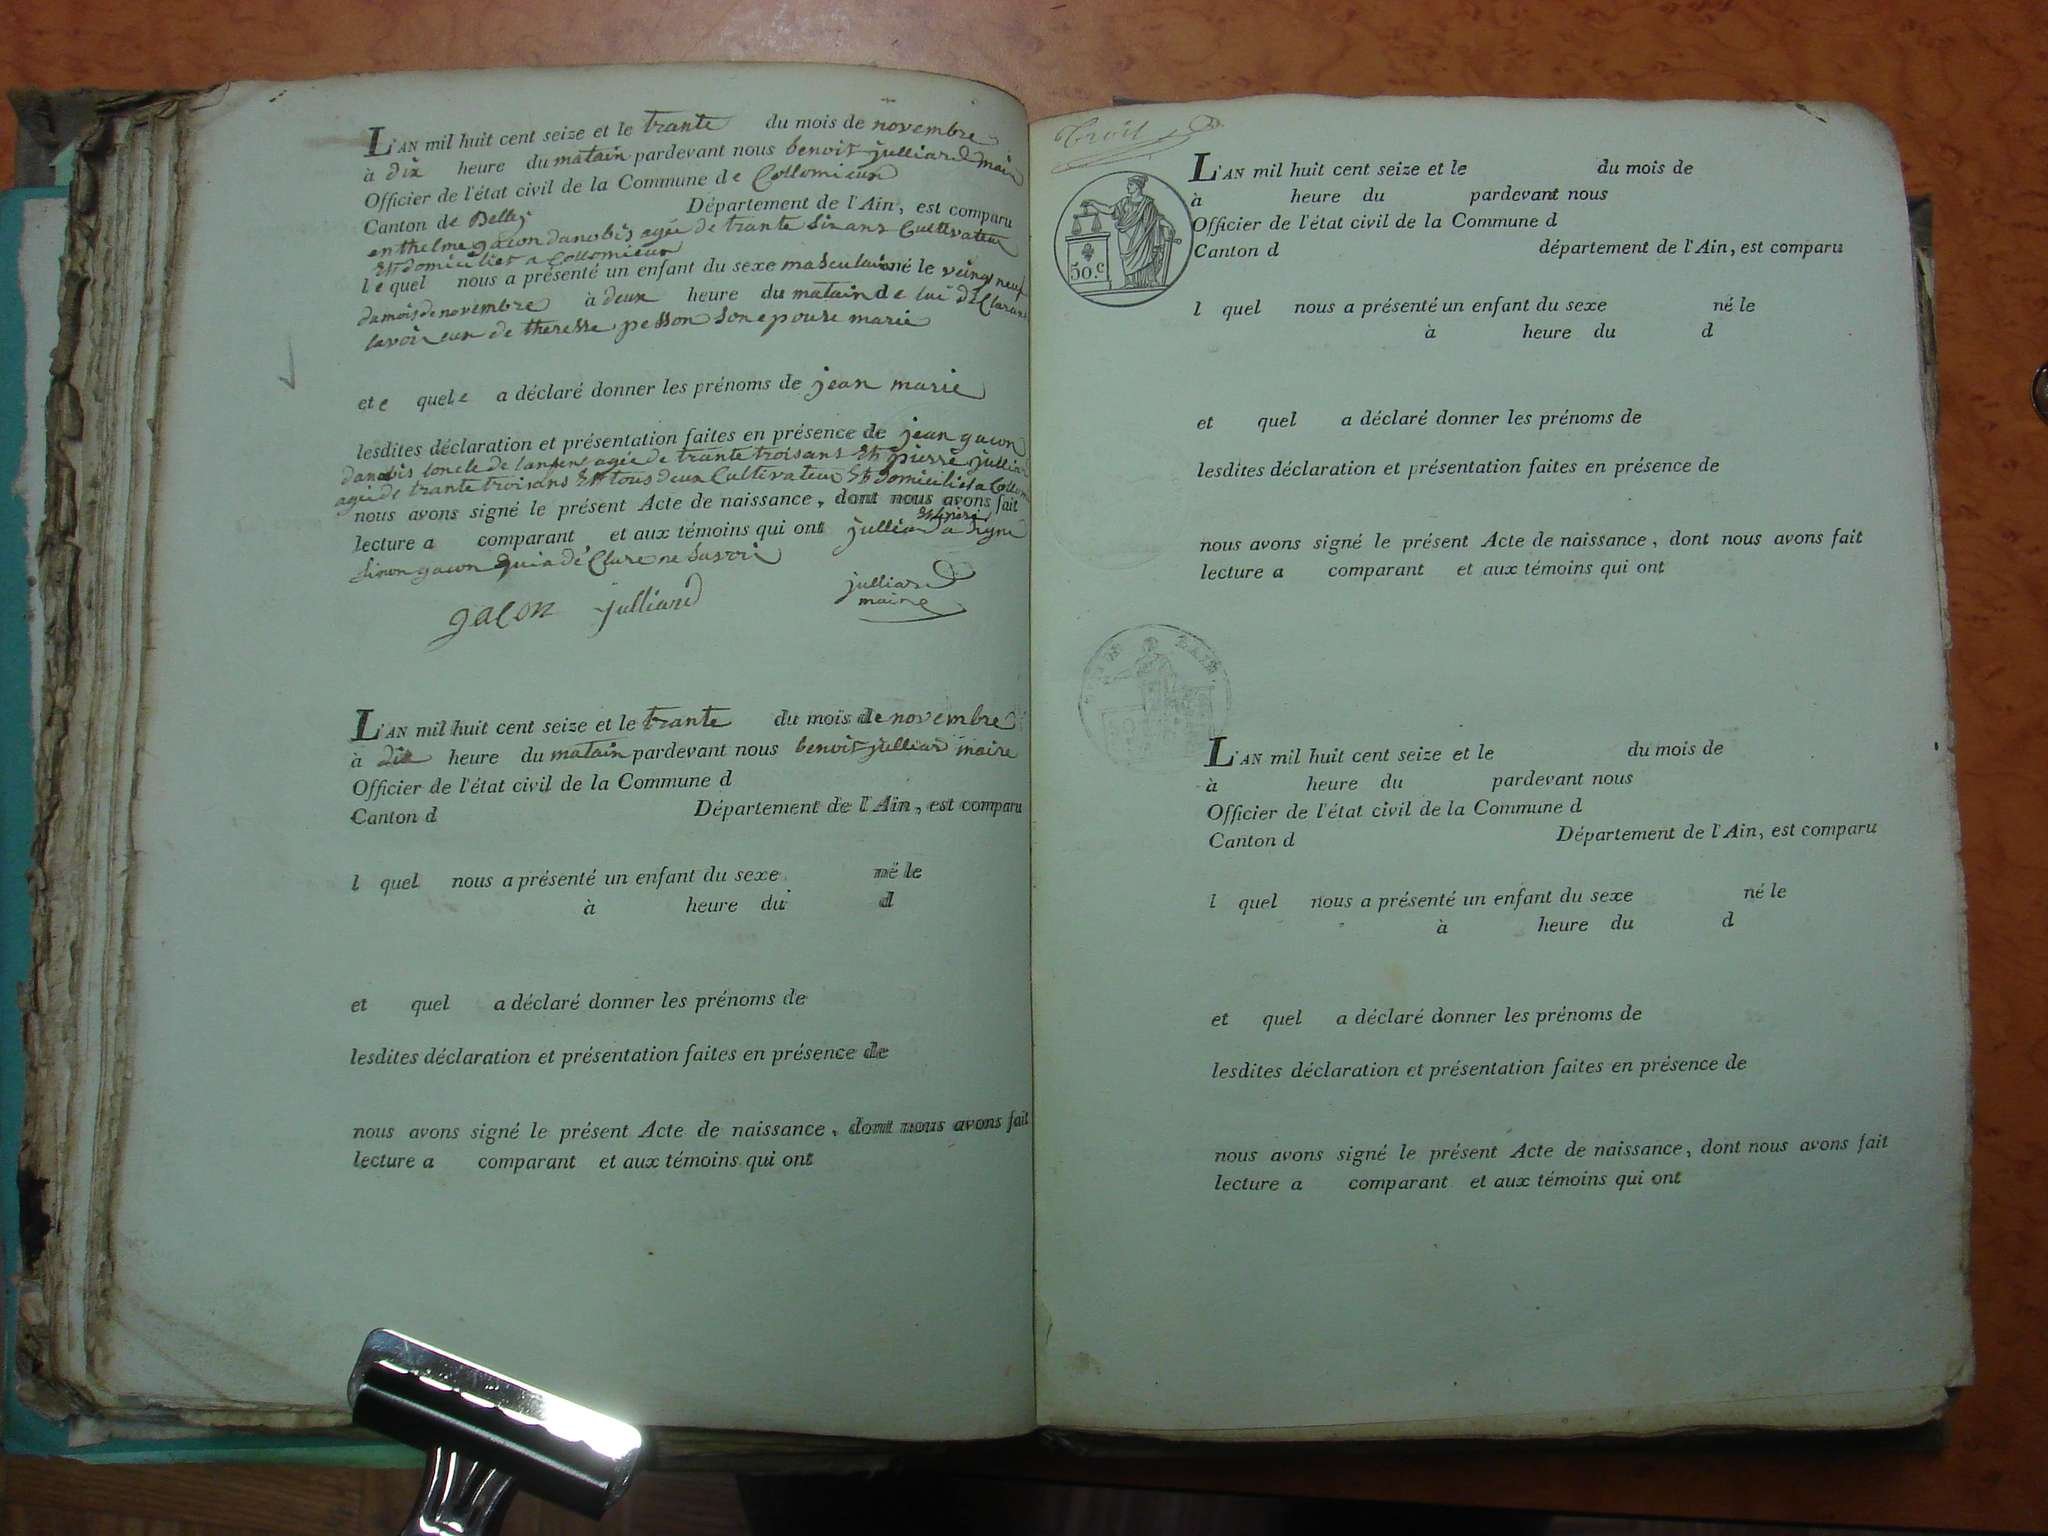 L'AN mil huit cent seize et le trante du mois de novembre
à dix heure du matain pardevant nous benoit julliard maire
Officier de l'état civil de la Commune de Collomieux
Canton de Belley Département de l'Ain, est comparu
enthelme gacon danobis agée de trante sixans Cultivateur
Et domicilies a Collomieux
le quel nous a présenté un enfant du sexe masculain né le veingneuf
dumois de novembre à deux heure du matain de lui déClarant
de theresse pesson Son epouse marie
et e quele a déclaré donner les prénoms de jean marie
lesdites déclaration et présentation faites en présence de jean gacon
danobis loncle de lanfent agée de trante troisans Et pierre julliard
agée de trante troisans Et tous deux Cultivateur Et domicilies a Collom
nous avons signé le présent Acte de naissance, dont nous avons fait
lecture a comparant et aux témoins qui ont julliard a signe
gacon qui a déClare ne Savoir
gacon julliard julliard
maire
L'AN mil huit cent seize et le trante du mois de novembre
à dix heure du matain pardevant nous benoit julliard maire
Officier de l'état civil de la Commune d
Canton d Département de l'Ain, est comparu
l quel nous a présenté un enfant du sexe né le
à heure du d
et quel a déclaré donner les prénoms de
lesdites déclaration et présentation faites en présence de
nous avons signé le présent Acte de naissance, dont nous avons fait
lecture a comparant et aux témoins qui ont
50.c
L'AN mil huit cent seize et le du mois de
à heure du pardevant nous
Officier de l'état civil de la Commune d
Canton d département de l'Ain, est comparu
l quel nous a présenté un enfant du sexe né le
à heure du d
et quel a déclaré donner les prénoms de
lesdites déclaration et présentation faites en présence de
nous avons signé le présent Acte de naissance, dont nous avons fait
lecture a comparant et aux témoins qui ont
L'AN mil huit cent seize et le du mois de
à heure du pardevant nous
Officier de l'état civil de la Commune d
Canton d Département de l'Ain, est comparu
l quel nous a présenté un enfant du sexe né le
à heure du d
et quel a déclaré donner les prénoms de
lesdites déclaration et présentation faites en présence de
nous avons signé le présent Acte de naissance, dont nous avons fait
lecture a comparant et aux témoins qui ont